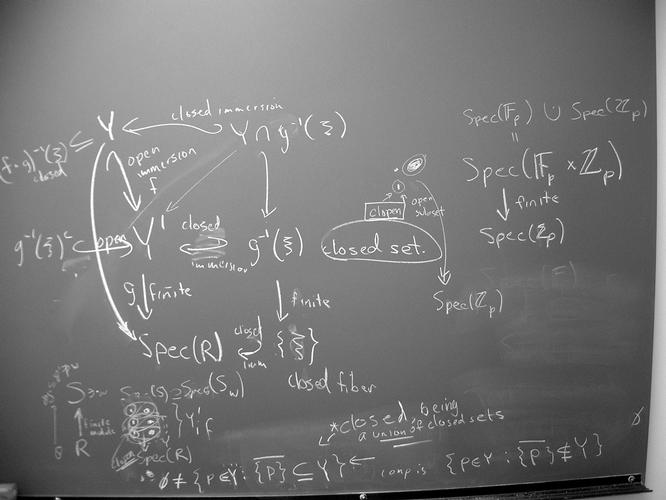 closed immersion
Y
Y ∩ g⁻¹(ξ)
(f∘g)⁻¹(ξ) ⊆
closed
open
immersion
f
g⁻¹(ξ)ᶜ open Y' closed g⁻¹(ξ)
immersion
g finite
finite
Spec(R) closed {ξ}
imm
closed fiber
Spec(𝔽ₚ) ∪ Spec(ℤₚ)
=
Spec(𝔽ₚ × ℤₚ)
finite
Spec(ℤₚ)
clopen
open
subset
closed set.
Spec(ℤₚ)
S
Spec(S) ⊇ Spec(S_w)
finite
R
Spec(R)
*closed, being
a union of closed sets
∅ ≠ {p∈Y : {p̄} ⊆ Y} ← comp is {p∈Y : {p̄} ⊄ Y}